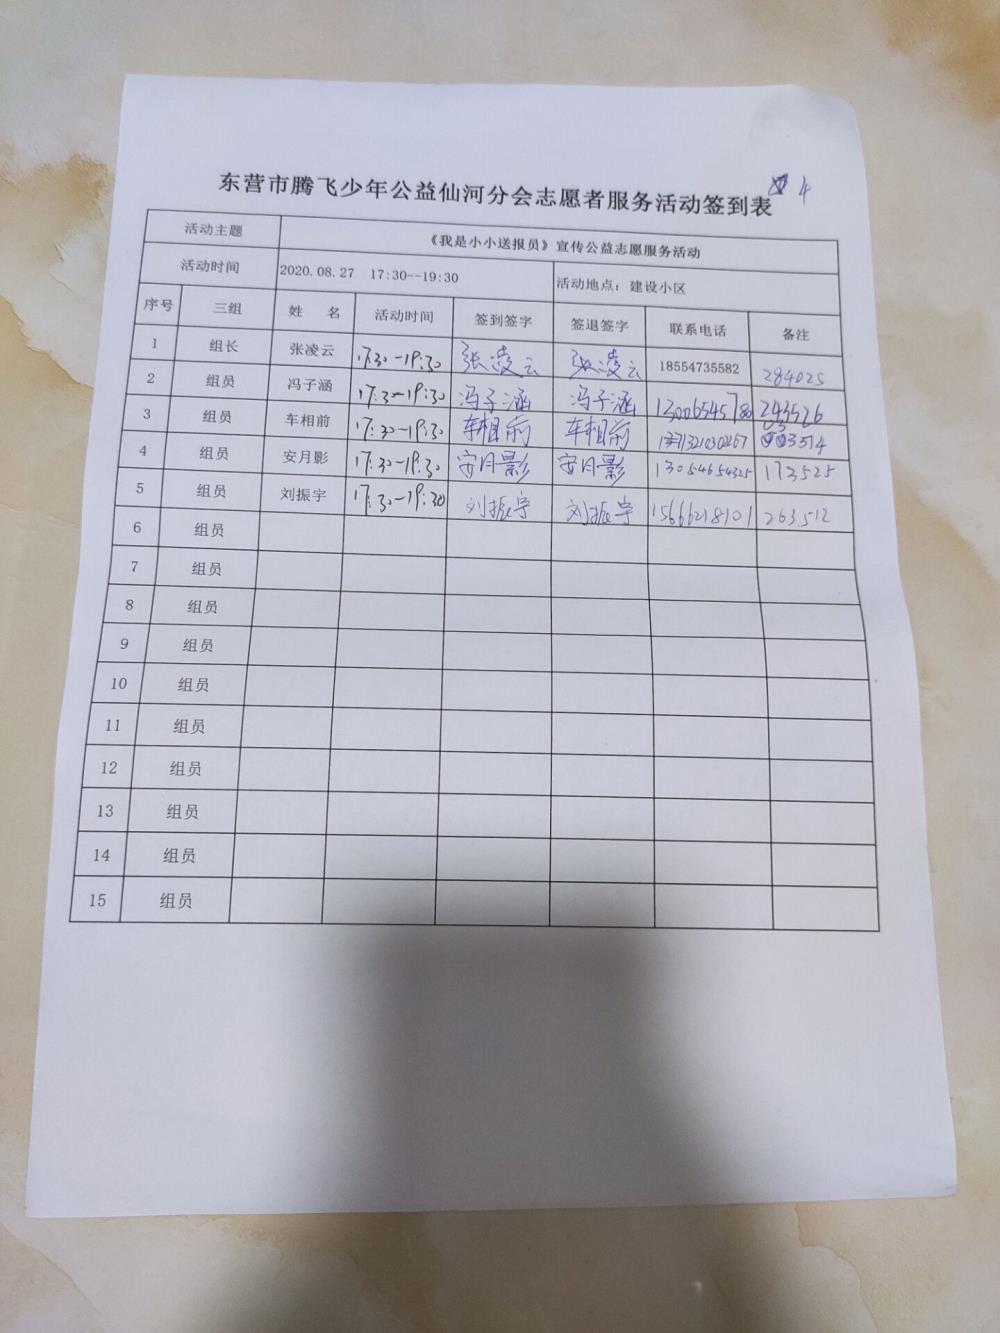 东营市腾飞少年公益仙河分会志愿者服务活动签到表 4
活动主题 《我是小小送报员》宣传公益志愿服务活动
活动时间 2020.08.27 17:30--19:30 活动地点：建设小区
序号 三组 姓 名 活动时间 签到签字 签退签字 联系电话 备注
1 组长 张凌云 17:30-19:30 张凌云 张凌云 18554735582 284025
2 组员 冯子涵 17:30-19:30 冯子涵 冯子涵 13006545780 243526
3 组员 车相前 17:30-19:30 车相前 车相前 033514
4 组员 安月影 17:30-19:30 安月影 安月影 13054654325 173525
5 组员 刘振宇 17:30-19:30 刘振宇 刘振宇 15666218101 263512
6 组员
7 组员
8 组员
9 组员
10 组员
11 组员
12 组员
13 组员
14 组员
15 组员